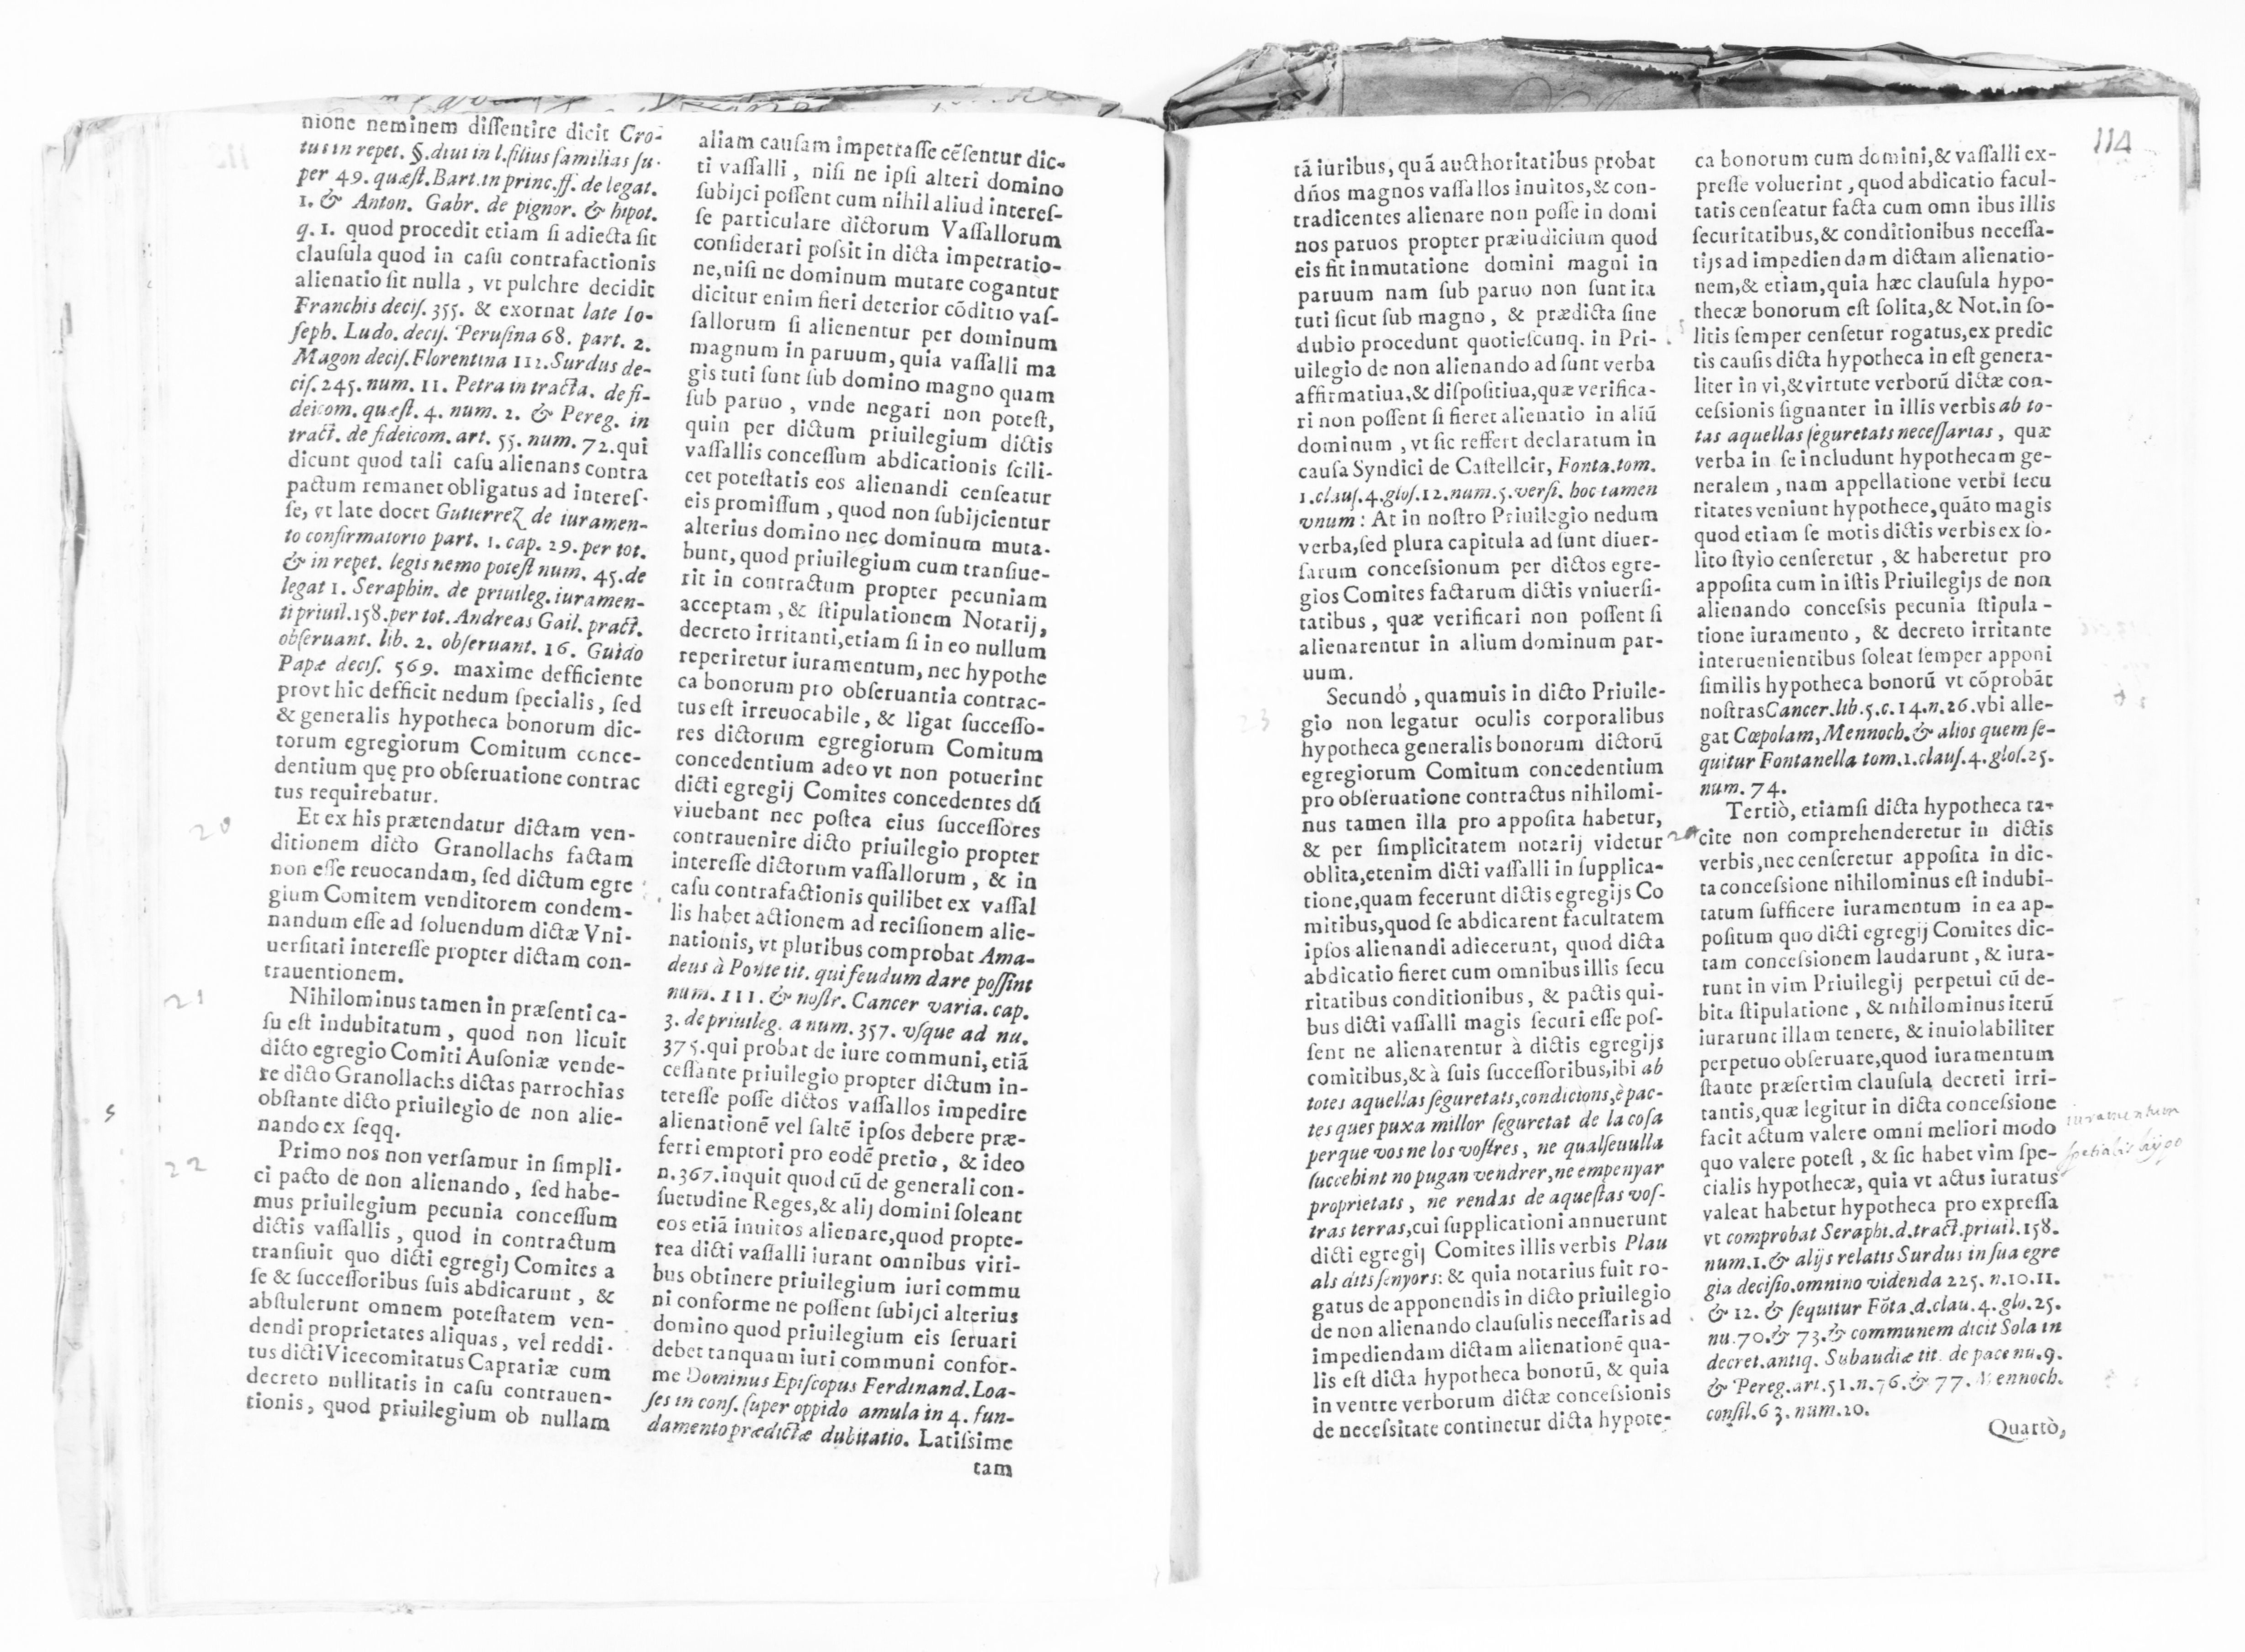 nione neminem dissentire dicit Cro-
tus in repet. §. diui in l. filius familias su-
per 49. quæst. Bart. in princ. ff. de legat.
1. & Anton. Gabr. de pignor. & hipot.
q. 1. quod procedit etiam si adiecta sit
clausula quod in casu contrafactionis
alienatio sit nulla, vt pulchre decidit
Franchis decis. 355. & exornat late Io-
seph. Ludo. decis. Perusina 68. part. 2.
Magon decis. Florentina 112. Surdus de-
cis. 245. num. 11. Petra in tracta. de fi-
deicom. quæst. 4. num. 2. & Pereg. in
tract. de fideicom. art. 55. num. 72. qui
dicunt quod tali casu alienans contra
pactum remanet obligatus ad interes-
se, vt late docet Gutierrez de iuramen-
to confirmatorio part. 1. cap. 29. per tot.
& in repet. legis nemo potest num. 45. de
legat 1. Seraphin. de priuileg. iuramen-
ti priuil. 158. per tot. Andreas Gail. pract.
obseruant. lib. 2. obseruant. 16. Guido
Papæ decis. 569. maxime defficiente
provt hic defficit nedum specialis, sed
& generalis hypotheca bonorum dic-
torum egregiorum Comitum conce-
dentium quę pro obseruatione contrac
tus requirebatur.
20
Et ex his prætendatur dictam ven-
ditionem dicto Granollachs factam
non esse reuocandam, sed dictum egre
gium Comitem venditorem condem-
nandum esse ad soluendum dictæ Vni-
uersitati interesse propter dictam con-
trauentionem.
21
Nihilominus tamen in præsenti ca-
su est indubitatum, quod non licuit
dicto egregio Comiti Ausoniæ vende-
re dicto Granollachs dictas parrochias
obstante dicto priuilegio de non alie-
nando ex seqq.
22
Primo nos non versamur in simpli-
ci pacto de non alienando, sed habe-
mus priuilegium pecunia concessum
dictis vassallis, quod in contractum
transiuit quo dicti egregij Comites a
se & successoribus suis abdicarunt, &
abstulerunt omnem potestatem ven-
dendi proprietates aliquas, vel reddi-
tus dicti Vicecomitatus Caprariæ cum
decreto nullitatis in casu contrauen-
tionis, quod priuilegium ob nullam
aliam causam impetrasse cẽsentur dic-
ti vassalli, nisi ne ipsi alteri domino
subijci possent cum nihil aliud interes-
se particulare dictorum Vassallorum
considerari possit in dicta impetratio-
ne, nisi ne dominum mutare cogantur
dicitur enim fieri deterior cõditio vas-
sallorum si alienentur per dominum
magnum in paruum, quia vassalli ma
gis tuti sunt sub domino magno quam
sub paruo, vnde negari non potest,
quin per dictum priuilegium dictis
vassallis concessum abdicationis scili-
cet potestatis eos alienandi censeatur
eis promissum, quod non subijcientur
alterius domino nec dominum muta-
bunt, quod priuilegium cum transiue-
rit in contractum propter pecuniam
acceptam, & stipulationem Notarij,
decreto irritanti, etiam si in eo nullum
reperiretur iuramentum, nec hypothe
ca bonorum pro obseruantia contrac-
tus est irreuocabile, & ligat successo-
res dictorum egregiorum Comitum
concedentium adeo vt non potuerint
dicti egregij Comites concedentes dũ
viuebant nec postea eius successores
contrauenire dicto priuilegio propter
interesse dictorum vassallorum, & in
casu contrafactionis quilibet ex vassal
lis habet actionem ad recisionem alie-
nationis, vt pluribus comprobat Ama-
deus à Ponte tit. qui feudum dare possint
num. 111. & nostr. Cancer varia. cap.
3. de priuileg. a num. 357. vsque ad nu.
375. qui probat de iure communi, etiã
cessante priuilegio propter dictum in-
teresse posse dictos vassallos impedire
alienationẽ vel saltẽ ipsos debere præ-
ferri emptori pro eodẽ pretio, & ideo
n. 367. inquit quod cũ de generali con-
suetudine Reges, & alij domini soleant
eos etiã inuitos alienare, quod propte-
rea dicti vassalli iurant omnibus viri-
bus obtinere priuilegium iuri commu
ni conforme ne possent subijci alterius
domino quod priuilegium eis seruari
debet tanquam iuri communi confor-
me Dominus Episcopus Ferdinand. Loa-
ses in cons. super oppido amula in 4. fun-
damento prædictæ dubitatio. Latissime
tam
114
tã iuribus, quã aucthoritatibus probat
dños magnos vassallos inuitos, & con-
tradicentes alienare non posse in domi
nos paruos propter præiudicium quod
eis fit in mutatione domini magni in
paruum nam sub paruo non sunt ita
tuti sicut sub magno, & prædicta sine
dubio procedunt quotiescunq. in Pri-
uilegio de non alienando ad sunt verba
affirmatiua, & dispositiua, quæ verifica-
ri non possent si fieret alienatio in aliũ
dominum, vt sic reffert declaratum in
causa Syndici de Castellcir, Fonta. tom.
1. claus. 4. glos. 12. num. 5. versi. hoc tamen
vnum: At in nostro Priuilegio nedum
verba, sed plura capitula ad sunt diuer-
sarum concessionum per dictos egre-
gios Comites factarum dictis vniuersi-
tatibus, quæ verificari non possent si
alienarentur in alium dominum par-
uum.
23
Secundò, quamuis in dicto Priuile-
gio non legatur oculis corporalibus
hypotheca generalis bonorum dictorũ
egregiorum Comitum concedentium
pro obseruatione contractus nihilomi-
nus tamen illa pro apposita habetur,
& per simplicitatem notarij videtur
oblita, etenim dicti vassalli in supplica-
tione, quam fecerunt dictis egregijs Co
mitibus, quod se abdicarent facultatem
ipsos alienandi adiecerunt, quod dicta
abdicatio fieret cum omnibus illis secu
ritatibus conditionibus, & pactis qui-
bus dicti vassalli magis securi esse pos-
sent ne alienarentur à dictis egregijs
comitibus, & à suis successoribus, ibi ab
totes aquellas seguretats, condicions, è pac-
tes ques puxa millor seguretat de la cosa
per que vos ne los vostres, ne qualseuulla
succehint no pugan vendrer, ne empenyar
proprietats, ne rendas de aquestas vos-
tras terras, cui supplicationi annuerunt
dicti egregij Comites illis verbis Plau
als dits senyors: & quia notarius fuit ro-
gatus de apponendis in dicto priuilegio
de non alienando clausulis necessaris ad
impediendam dictam alienationẽ qua-
lis est dicta hypotheca bonorũ, & quia
in ventre verborum dictæ concessionis
de necessitate continetur dicta hypote-
ca bonorum cum domini, & vassalli ex-
presse voluerint, quod abdicatio facul-
tatis censeatur facta cum omn ibus illis
securitatibus, & conditionibus necessa-
tijs ad impedien dam dictam alienatio-
nem, & etiam, quia hæc clausula hypo-
thecæ bonorum est solita, & Not. in so-
litis semper censetur rogatus, ex predic
tis causis dicta hypotheca in est genera-
liter in vi, & virtute verborũ dictæ con-
cessionis signanter in illis verbis ab to-
tas aquellas seguretats necessarias, quæ
verba in se includunt hypothecam ge-
neralem, nam appellatione verbi secu
ritates veniunt hypothece, quãto magis
quod etiam se motis dictis verbis ex so-
lito stylo censeretur, & haberetur pro
apposita cum in istis Priuilegijs de non
alienando concessis pecunia stipula-
tione iuramento, & decreto irritante
interuenientibus soleat semper apponi
similis hypotheca bonorũ vt cõprobãt
nostras Cancer. lib. 5. c. 14. n. 26. vbi alle-
gat Cæpolam, Mennoch. & alios quem se-
quitur Fontanella tom. 1. claus. 4. glos. 25.
num. 74.
24
Tertiò, etiamsi dicta hypotheca ta-
cite non comprehenderetur in dictis
verbis, nec censeretur apposita in dic-
ta concessione nihilominus est indubi-
tatum sufficere iuramentum in ea ap-
positum quo dicti egregij Comites dic-
tam concessionem laudarunt, & iura-
runt in vim Priuilegij perpetui cũ de-
bita stipulatione, & nihilominus iterũ
iurarunt illam tenere, & inuiolabiliter
perpetuo obseruare, quod iuramentum
stante præsertim clausula decreti irri-
tantis, quæ legitur in dicta concessione
facit actum valere omni meliori modo
quo valere potest, & sic habet vim spe-
cialis hypothecæ, quia vt actus iuratus
valeat habetur hypotheca pro expressa
vt comprobat Seraphi. d. tract. priuil. 158.
num. 1. & alijs relatis Surdus in sua egre
gia decisio. omnino videnda 225. n. 10. 11.
& 12. & sequitur Fõta. d. clau. 4. glo. 25.
nu. 70. & 73. & communem dicit Sola in
decret. antiq. Subaudiæ tit. de pace nu. 9.
& Pereg. art. 51. n. 76. & 77. Mennoch.
consil. 63. num. 20.
Quartò,
iuramentum
spetialis hypo